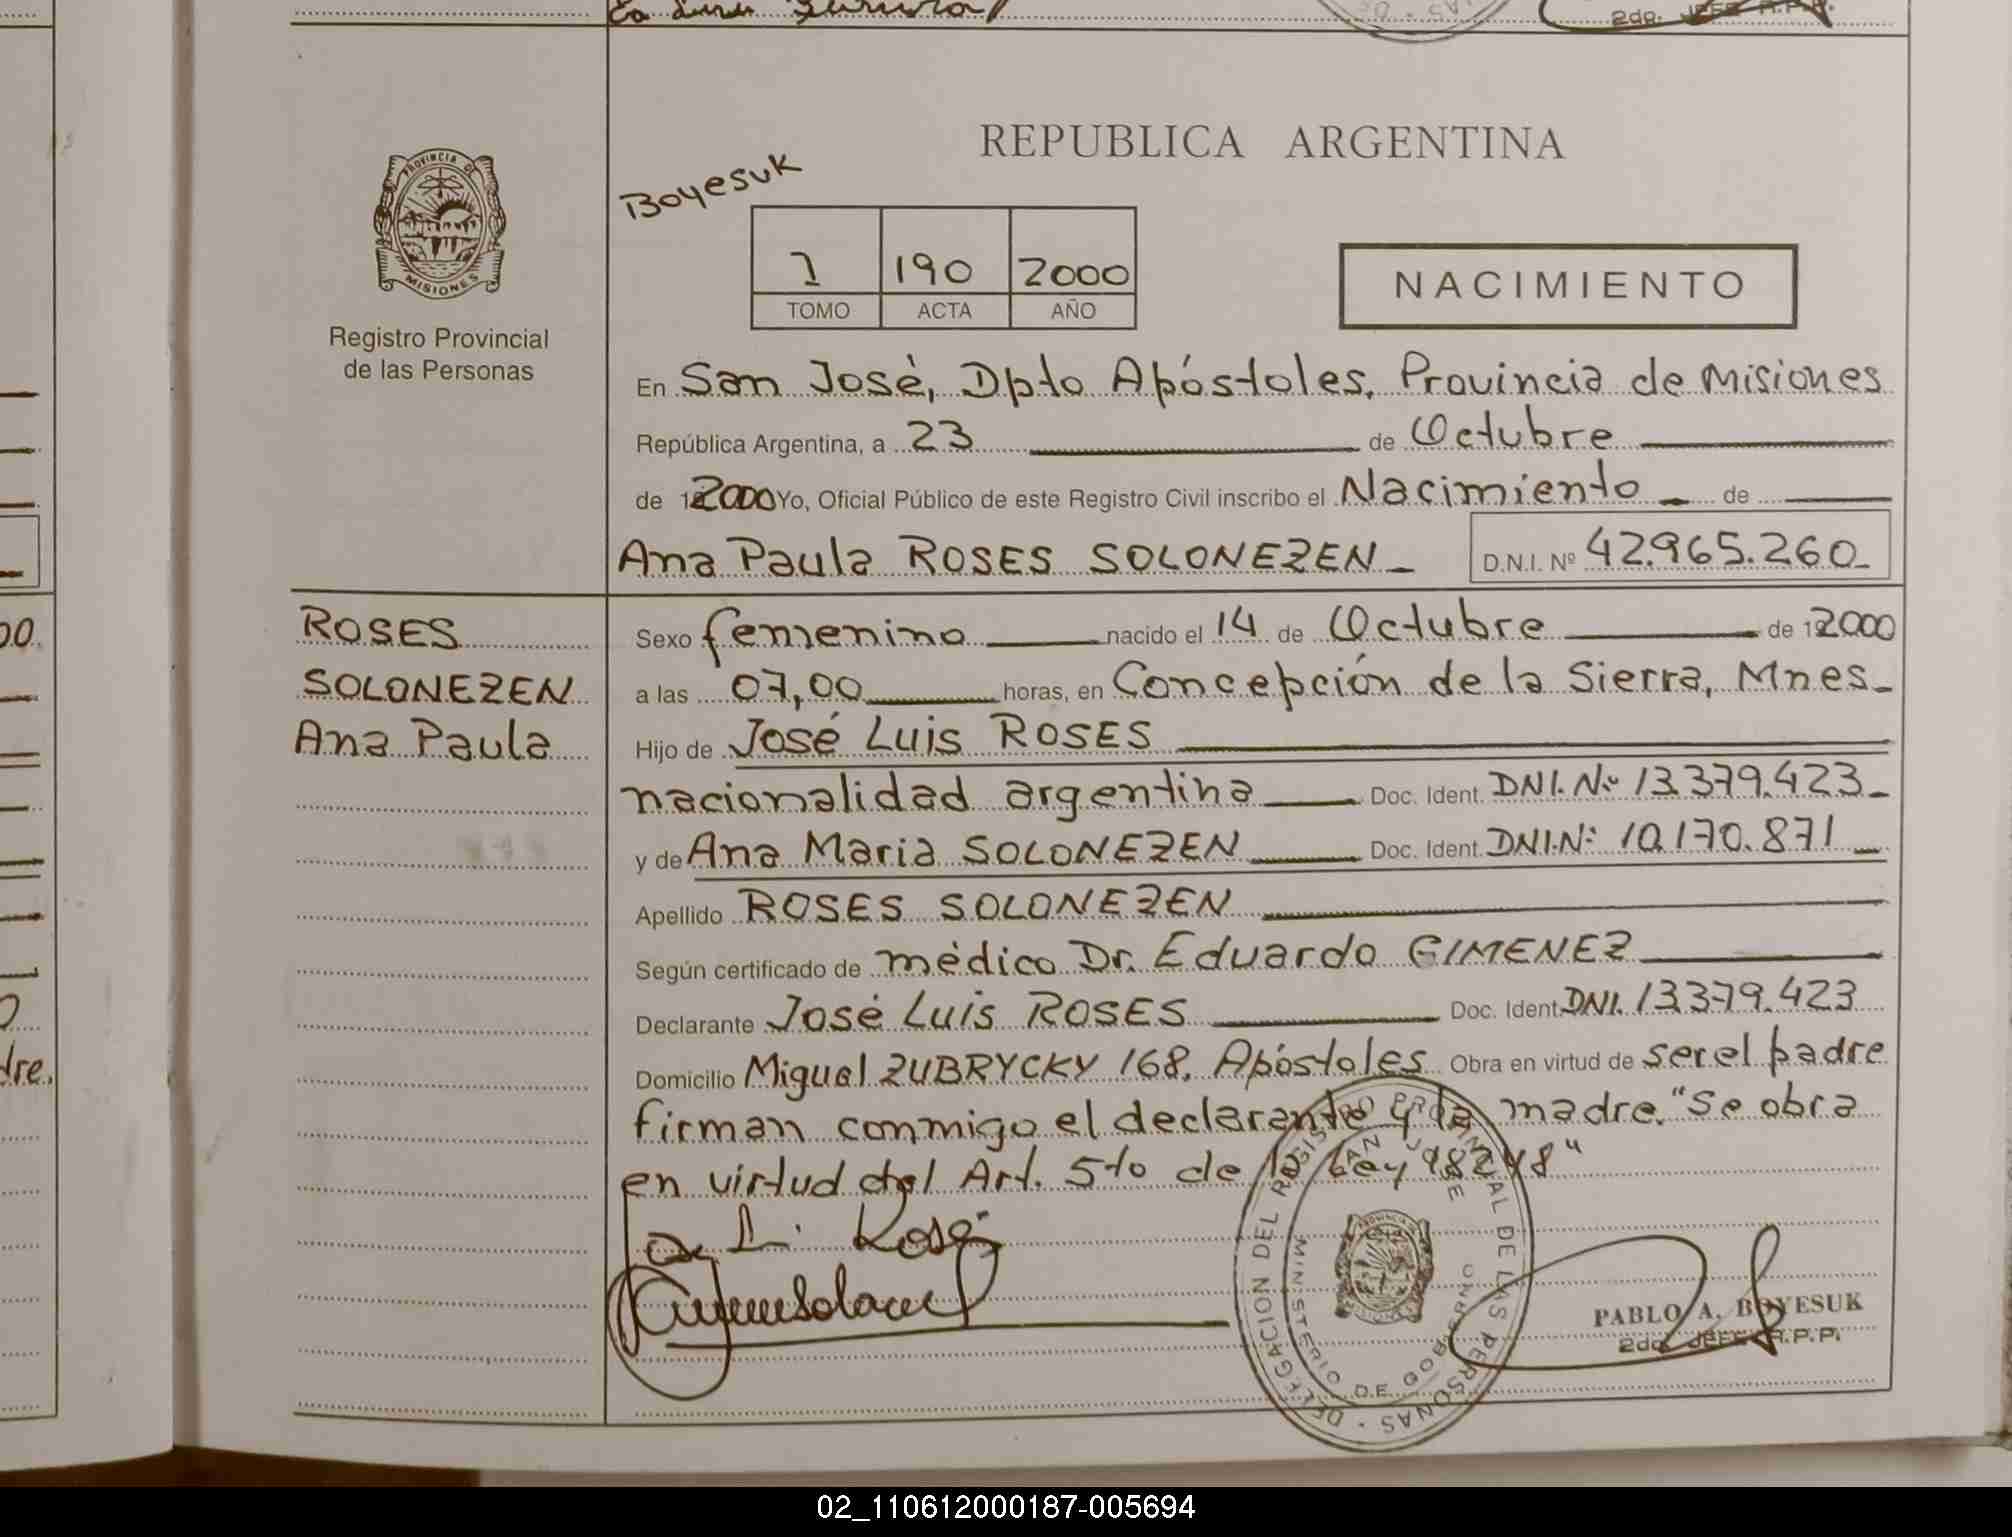 2do. JEFE R.P.P.
REPUBLICA ARGENTINA
Boyesuk
PROVINCIA DE
MISIONES
Registro Provincial
de las Personas
1 190 2000
TOMO ACTA AÑO
NACIMIENTO
En San José, Dpto Apóstoles, Provincia de Misiones
República Argentina, a 23 de Octubre
de 2000 Yo, Oficial Público de este Registro Civil inscribo el Nacimiento de
Ana Paula ROSES SOLONEZEN D.N.I. Nº 42.965.260
ROSES
SOLONEZEN
Ana Paula
Sexo femenino nacido el 14 de Octubre de 2000
a las 07,00 horas, en Concepción de la Sierra, Mnes
Hijo de José Luis ROSES
nacionalidad argentina Doc. Ident. DNI. Nº 13.379.423
y de Ana Maria SOLONEZEN Doc. Ident. DNI.Nº 10.170.871
Apellido ROSES SOLONEZEN
Según certificado de médico Dr. Eduardo GIMENEZ
Declarante José Luis ROSES Doc. Ident. DNI. 13.379.423
Domicilio Miguel ZUBRYCKY 168, Apóstoles Obra en virtud de ser el padre
firman conmigo el declarante y la madre. "Se obra
en virtud del Art. 5to de la Ley 18248"
DELEGACION DEL REGISTRO PROVINCIAL DE LAS PERSONAS
SAN JOSE
MINISTERIO DE GOBIERNO
PABLO A. BOYESUK
2do. JEFE R.P.P.
00.
dre.
02_110612000187-005694